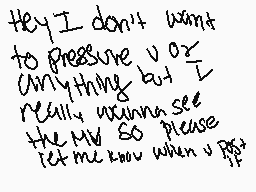 Hey I don't want
to pressure u or
anything but I
really wanna see
the MV so please
let me know when u post
it